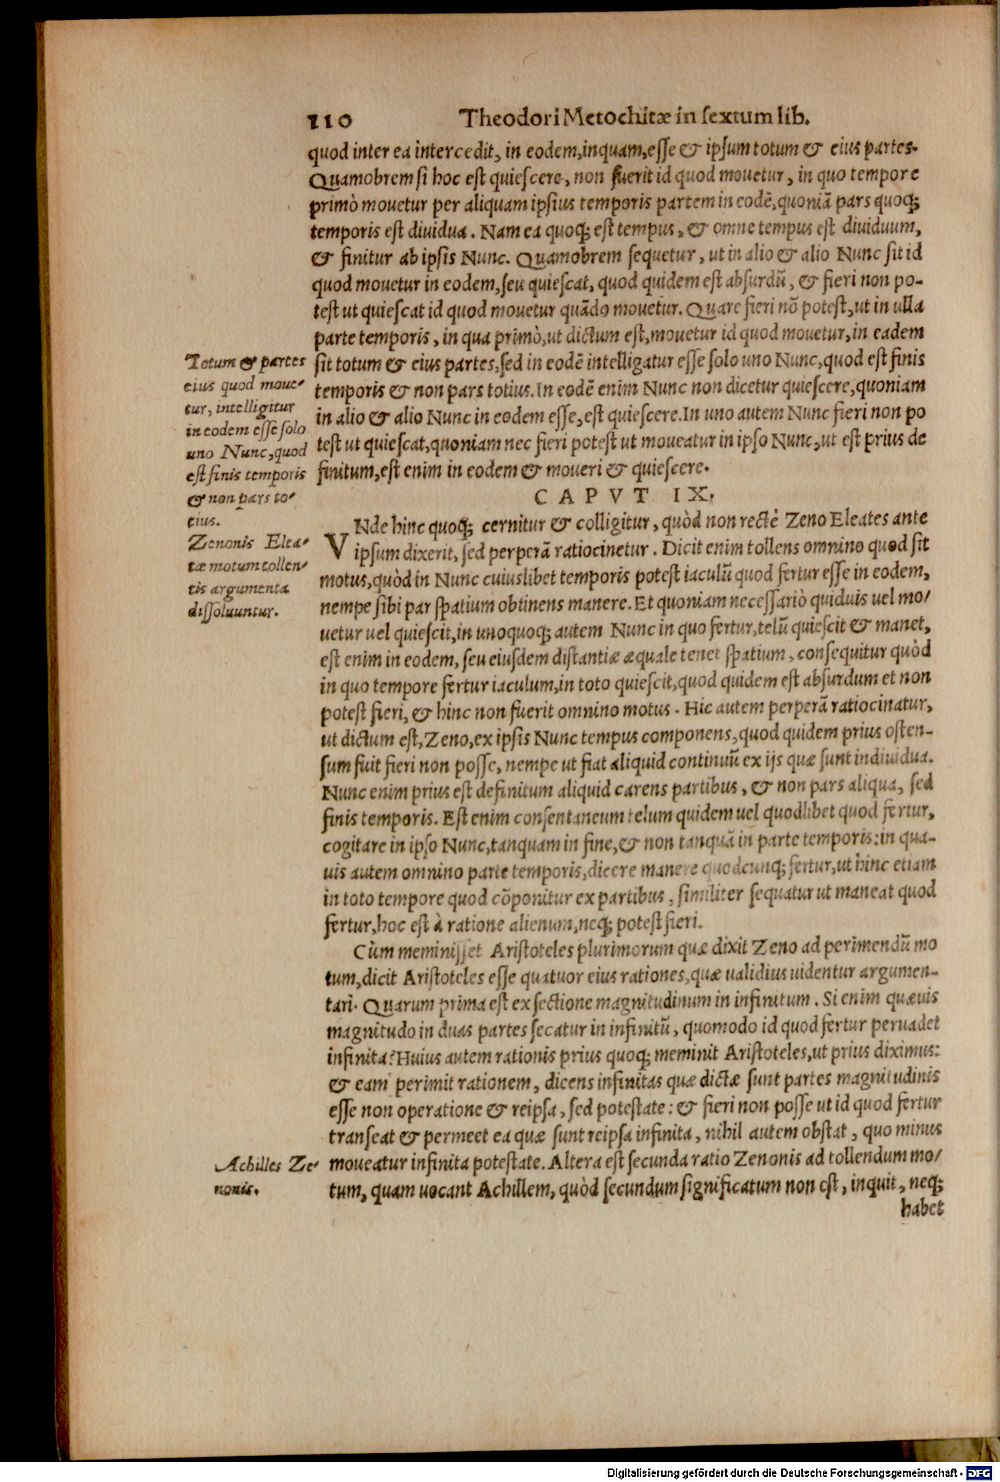 110 Theodori Metochitæ in sextum lib.
quod inter ea intercedit, in eodem, inquam, esse & ipsum totum & eius partes.
Quamobrem si hoc est quiescere, non fuerit id quod mouetur, in quo tempore
primò mouetur per aliquam ipsius temporis partem in eodē, quoniā pars quoq;
temporis est diuidua. Nam ea quoq; est tempus, & omne tempus est diuiduum,
& finitur ab ipsis Nunc. Quamobrem sequetur, ut in alio & alio Nunc sit id
quod mouetur in eodem, seu quiescat, quod quidem est absurdū, & fieri non po-
test ut quiescat id quod mouetur quādo mouetur. Quare fieri nō potest, ut in ulla
parte temporis, in qua primò, ut dictum est, mouetur id quod mouetur, in eadem
sit totum & eius partes, sed in eodē intelligatur esse solo uno Nunc, quod est finis
temporis & non pars totius. In eodē enim Nunc non dicetur quiescere, quoniam
in alio & alio Nunc in eodem esse, est quiescere. In uno autem Nunc fieri non po
test ut quiescat, quoniam nec fieri potest ut moueatur in ipso Nunc, ut est prius de
finitum, est enim in eodem & moueri & quiescere.
Totum & partes
eius quod moue-
tur, intelligitur
in eodem esse solo
uno Nunc, quod
est finis temporis
& non pars to-
cius.
CAPVT IX.
VNde hinc quoq; cernitur & colligitur, quòd non rectè Zeno Eleates ante
ipsum dixerit, sed perperā ratiocinetur. Dicit enim tollens omnino quod sit
motus, quòd in Nunc cuiuslibet temporis potest iaculū quod fertur esse in eodem,
nempe sibi par spatium obtinens manere. Et quoniam necessariò quiduis uel mo-
uetur uel quiescit, in unoquoq; autem Nunc in quo fertur, telū quiescit & manet,
est enim in eodem, seu eiusdem distantiæ æquale tenet spatium, consequitur quòd
in quo tempore fertur iaculum, in toto quiescit, quod quidem est absurdum et non
potest fieri, & hinc non fuerit omnino motus. Hic autem perperā ratiocinatur,
ut dictum est, Zeno, ex ipsis Nunc tempus componens, quod quidem prius osten-
sum fuit fieri non posse, nempe ut fiat aliquid continuū ex ijs quæ sunt indiuidua.
Nunc enim prius est definitum aliquid carens partibus, & non pars aliqua, sed
finis temporis. Est enim consentaneum telum quidem uel quodlibet quod fertur,
cogitare in ipso Nunc, tanquam in fine, & non tanquā in parte temporis: in qua-
uis autem omnino parte temporis, dicere manere quodcunq; fertur, ut hinc etiam
in toto tempore quod cōponitur ex partibus, similiter sequatur ut maneat quod
fertur, hoc est à ratione alienum, neq; potest fieri.
Zenonis Elea-
tæ motum tollen-
tis argumenta
dissoluuntur.
Cùm meminisset Aristoteles plurimorum quæ dixit Zeno ad perimendū mo
tum, dicit Aristoteles esse quatuor eius rationes, quæ ualidius uidentur argumen-
tari. Quarum prima est ex sectione magnitudinum in infinitum. Si enim quæuis
magnitudo in duas partes secatur in infinitū, quomodo id quod fertur peruadet
infinita? Huius autem rationis prius quoq; meminit Aristoteles, ut prius diximus:
& eam perimit rationem, dicens infinitas quæ dictæ sunt partes magnitudinis
esse non operatione & reipsa, sed potestate: & fieri non posse ut id quod fertur
transeat & permeet ea quæ sunt reipsa infinita, nihil autem obstat, quo minus
moueatur infinita potestate. Altera est secunda ratio Zenonis ad tollendum mo-
tum, quam uocant Achillem, quòd secundum significatum non est, inquit, neq;
Achilles Ze-
nonis.
habet
Digitalisierung gefördert durch die Deutsche Forschungsgemeinschaft - DFG